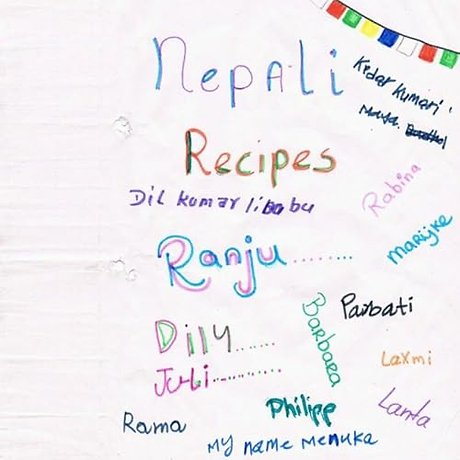 Nepali
Kedar Kumari
Maya.
Recipes
Rabina
Dil kumar libabu
Marijke
Ranju........
Parbati
Barbara
Dily......
Laxmi
Juli..........
Philipp
Lanta
Rama
My name Menuka